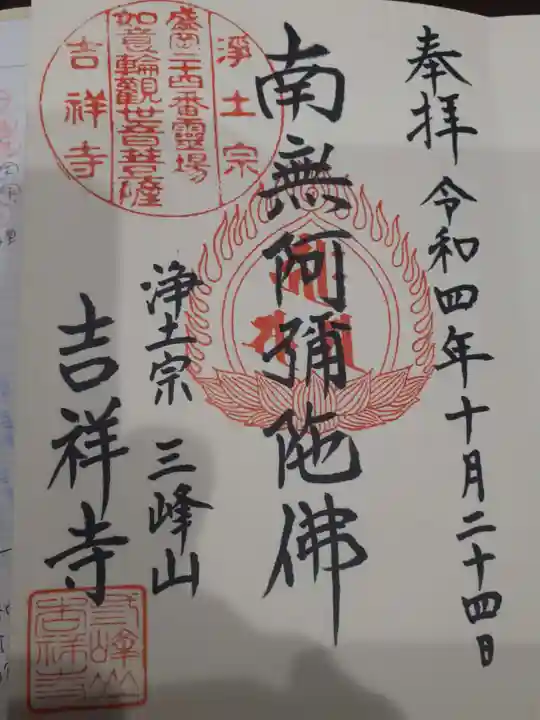 奉拝
令和四年十月二十四日
南無阿彌陀佛
浄土宗 三峰山
吉祥寺
淨土宗
盛岡三十四番靈場
如意輪觀世音菩薩
吉祥寺
三峰山
吉祥寺